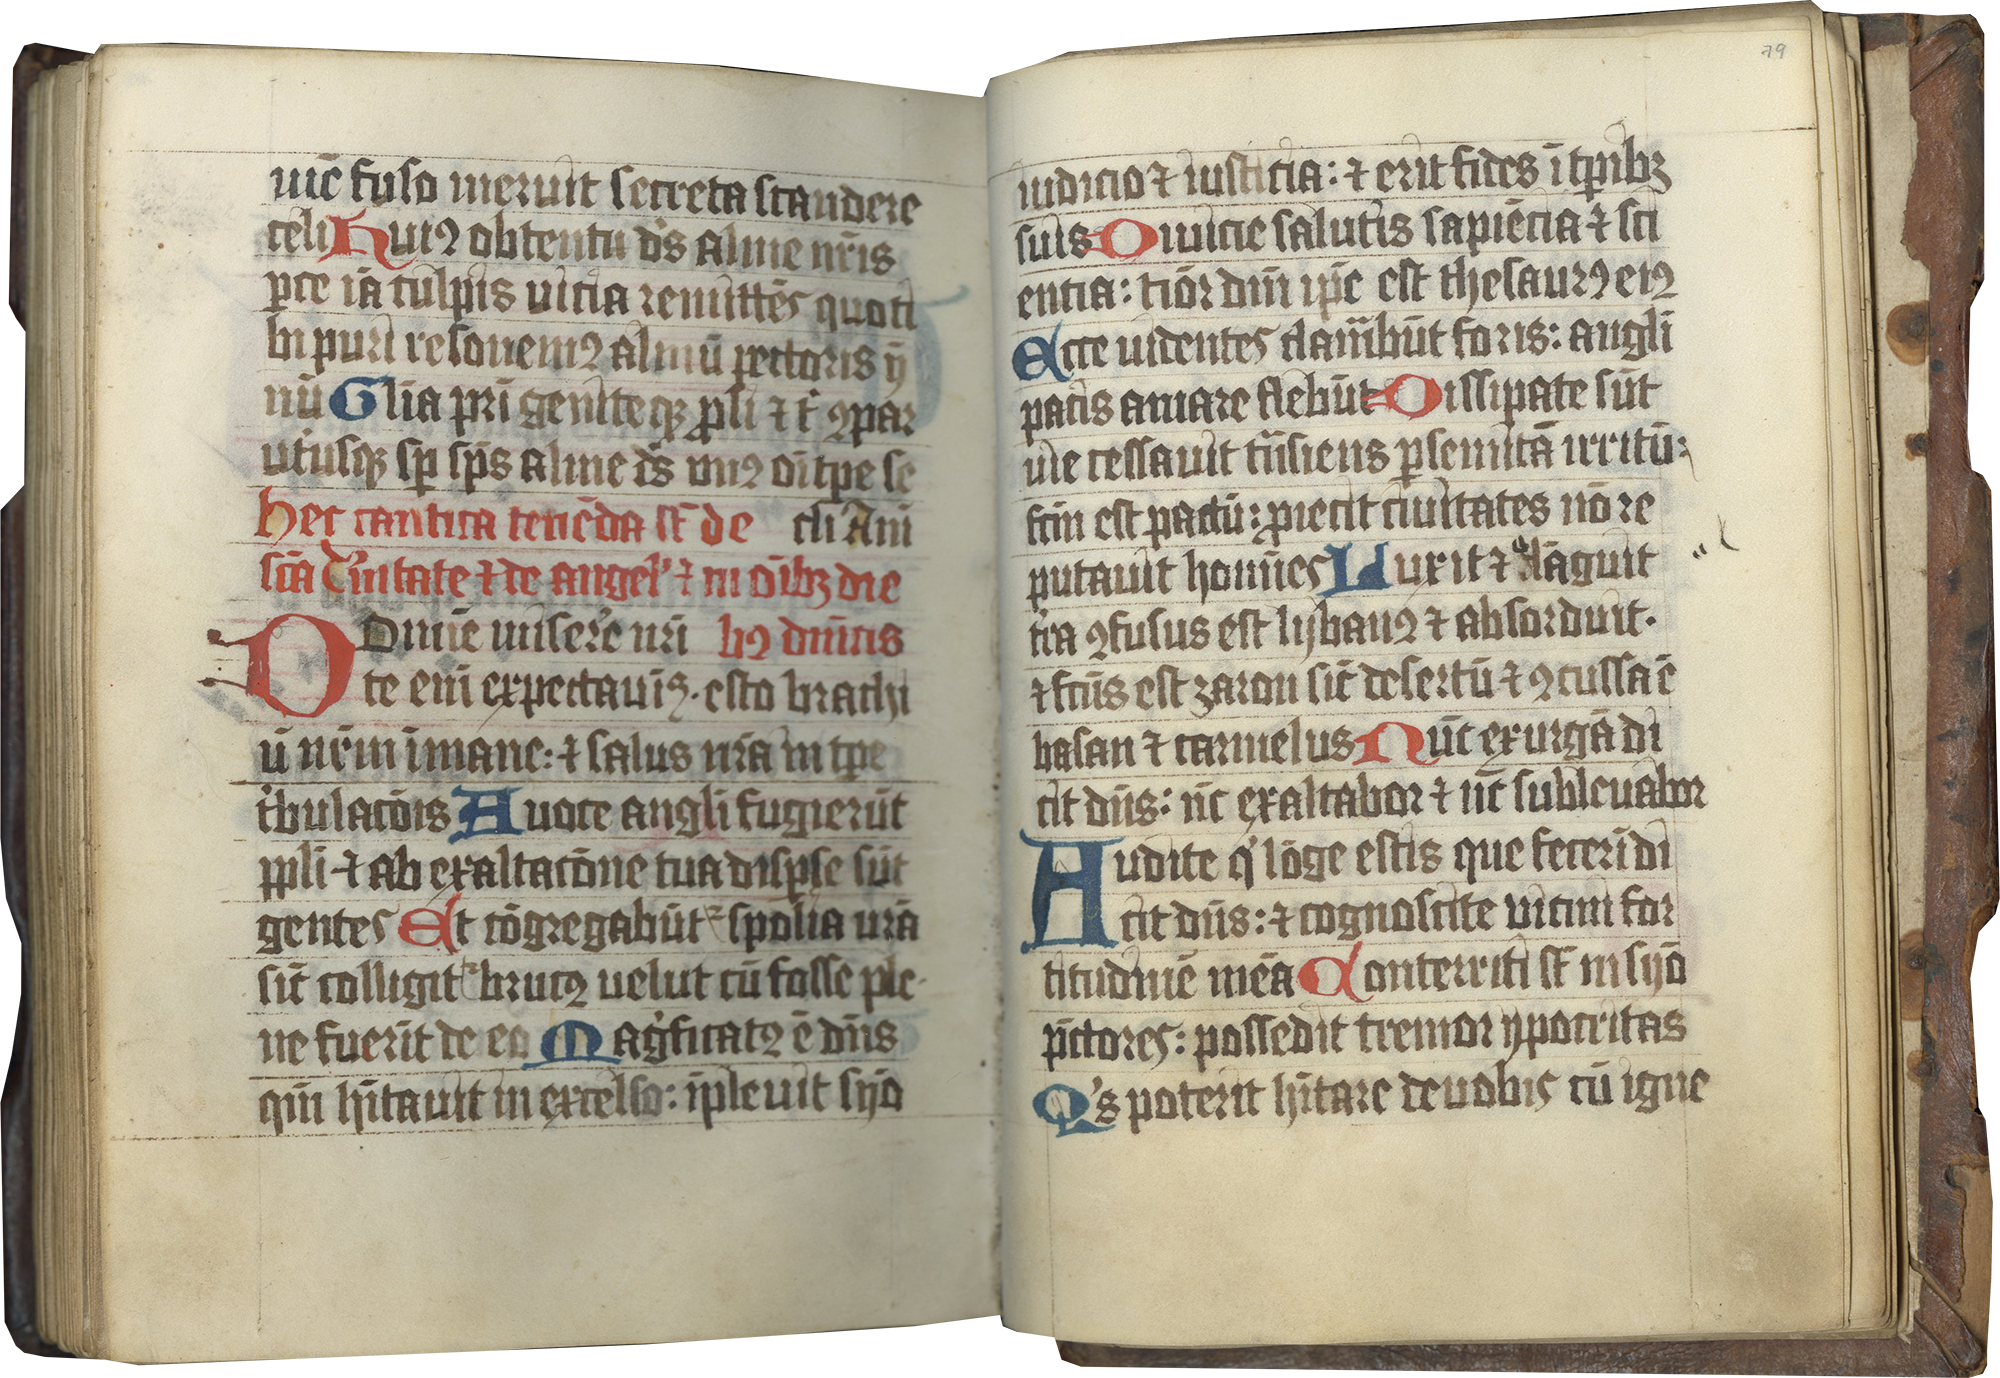 nic̄ fuso meruit secreta scandere
celi Huiꝰ obtentu ds̄ alme nr̄is
ꝑce iā culpis uicia remittēs quoti
bi puri resonemꝰ almū pectoris ẏ
nū Gl̄ia pr̄i geniteqꝫ ꝓli ⁊ t̄ ꝯpar
utiusqꝫ sꝑ sp̄s alme ds̄ unꝰ oī tꝑe se
Hec cantica tenēda st̄ de cli Am̄
sc̄ā t'nitate ⁊ de angel' ⁊ in oībꝫ die
Domīe misere' nr̄i hꝰ dn̄icis
te eni expectauiꝰ. esto brachi
ū nr̄m ī mane: ⁊ salus nr̄a in tꝑe
t'bulacōis A uoce angl̄i fugierūt
ppl̄i ⁊ ab exaltacōne tua dispse sūt
gentes Et cōgregabūt᷑ spolia ur̄a
sic̄ colligit᷑ brucꝰ uelut cū fosse ple
ne fuerīt de eo Maḡficatꝰ ē dn̄s
qm̄ hītauit in excelso: īpleuit syō
79
iudicio ⁊ iusticia: ⁊ erit fides ī tꝑibꝫ
suis Diuicie salutis sapiēcia ⁊ sci
entia: tiōr dn̄i ip̄e est thesaurꝰ eiꝰ
Ecce uidentes clam̄būt foris: angl̄i
pacis amare flebūt Dissipate sūt
uie cessauit tn̄siens ꝑ semitā irritū:
fc̄m est pactū: ꝓiecit ciuitates nō re
putauit homīes Luxit ⁊ elāguit
t'ra ꝯfusus est lybanꝰ ⁊ absorduit.
⁊ fc̄us est zaron sic̄ desertū ⁊ ꝯcussa ē
basan ⁊ carmelus Nūc exurgā di
cit dn̄s: nc̄ exaltabor ⁊ nc̄ subleuabor
Audite q' lōge estis que fecerī di
cit dn̄s: ⁊ cognoscite uicini for
titudinē meā Conterriti st̄ in syō
pc̄tores: possedit tremor ypocritas
Q's poterit hītare de uobis cū igne